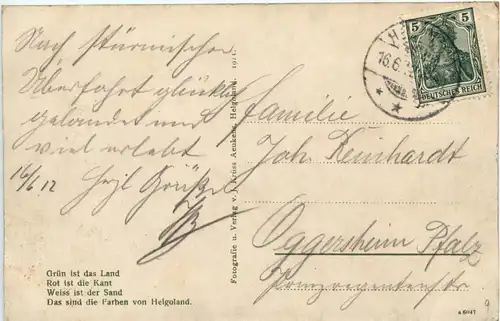 Nach stürmischer
Überfahrt glücklich
gelandet und
viel erlebt
16/6 12 Herzl Grüße
Familie
Joh. Reinhardt
Oggersheim Pfalz
5 5
DEUTSCHES REICH
16.6.
Fotografie u. Verlag v. J. Kriss Aeuckens, Helgoland. 1911.
Grün ist das Land
Rot ist die Kant
Weiss ist der Sand
Das sind die Farben von Helgoland.